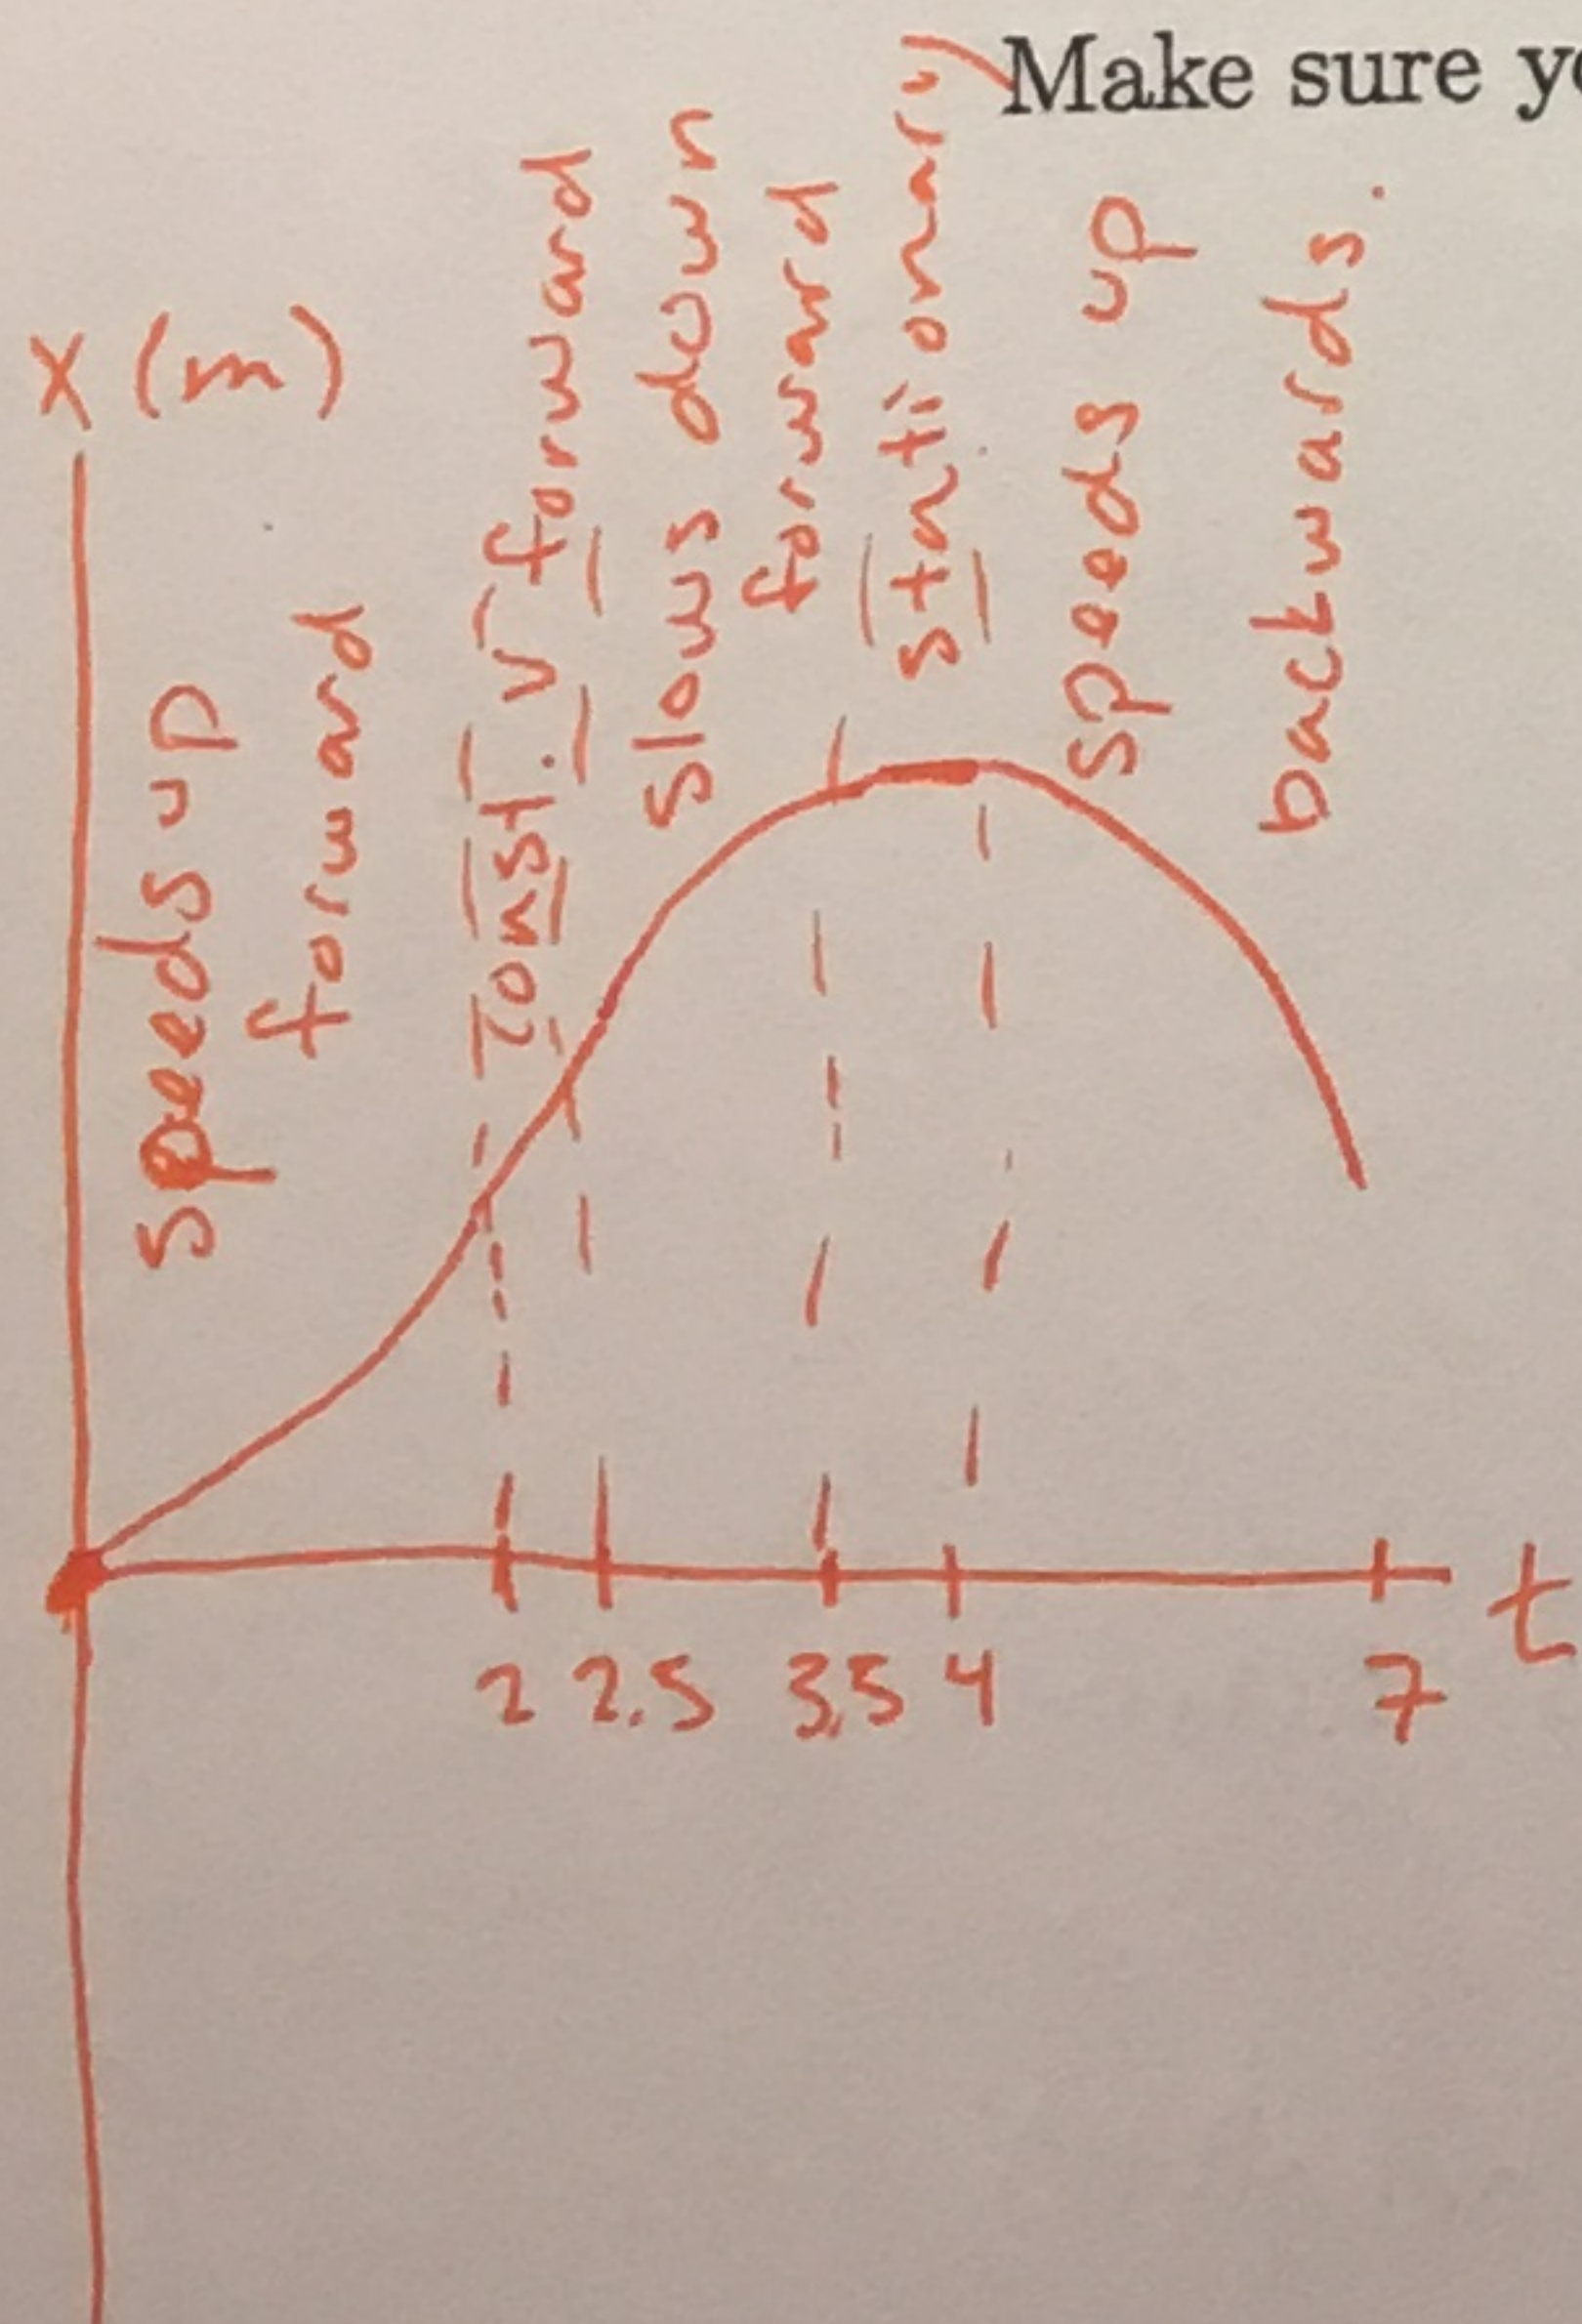 Make sure
x (m)
speeds up
forward
const. v forward
slows down
forward
stationary
speeds up
backwards.
2 2.5 3.5 4 7 t